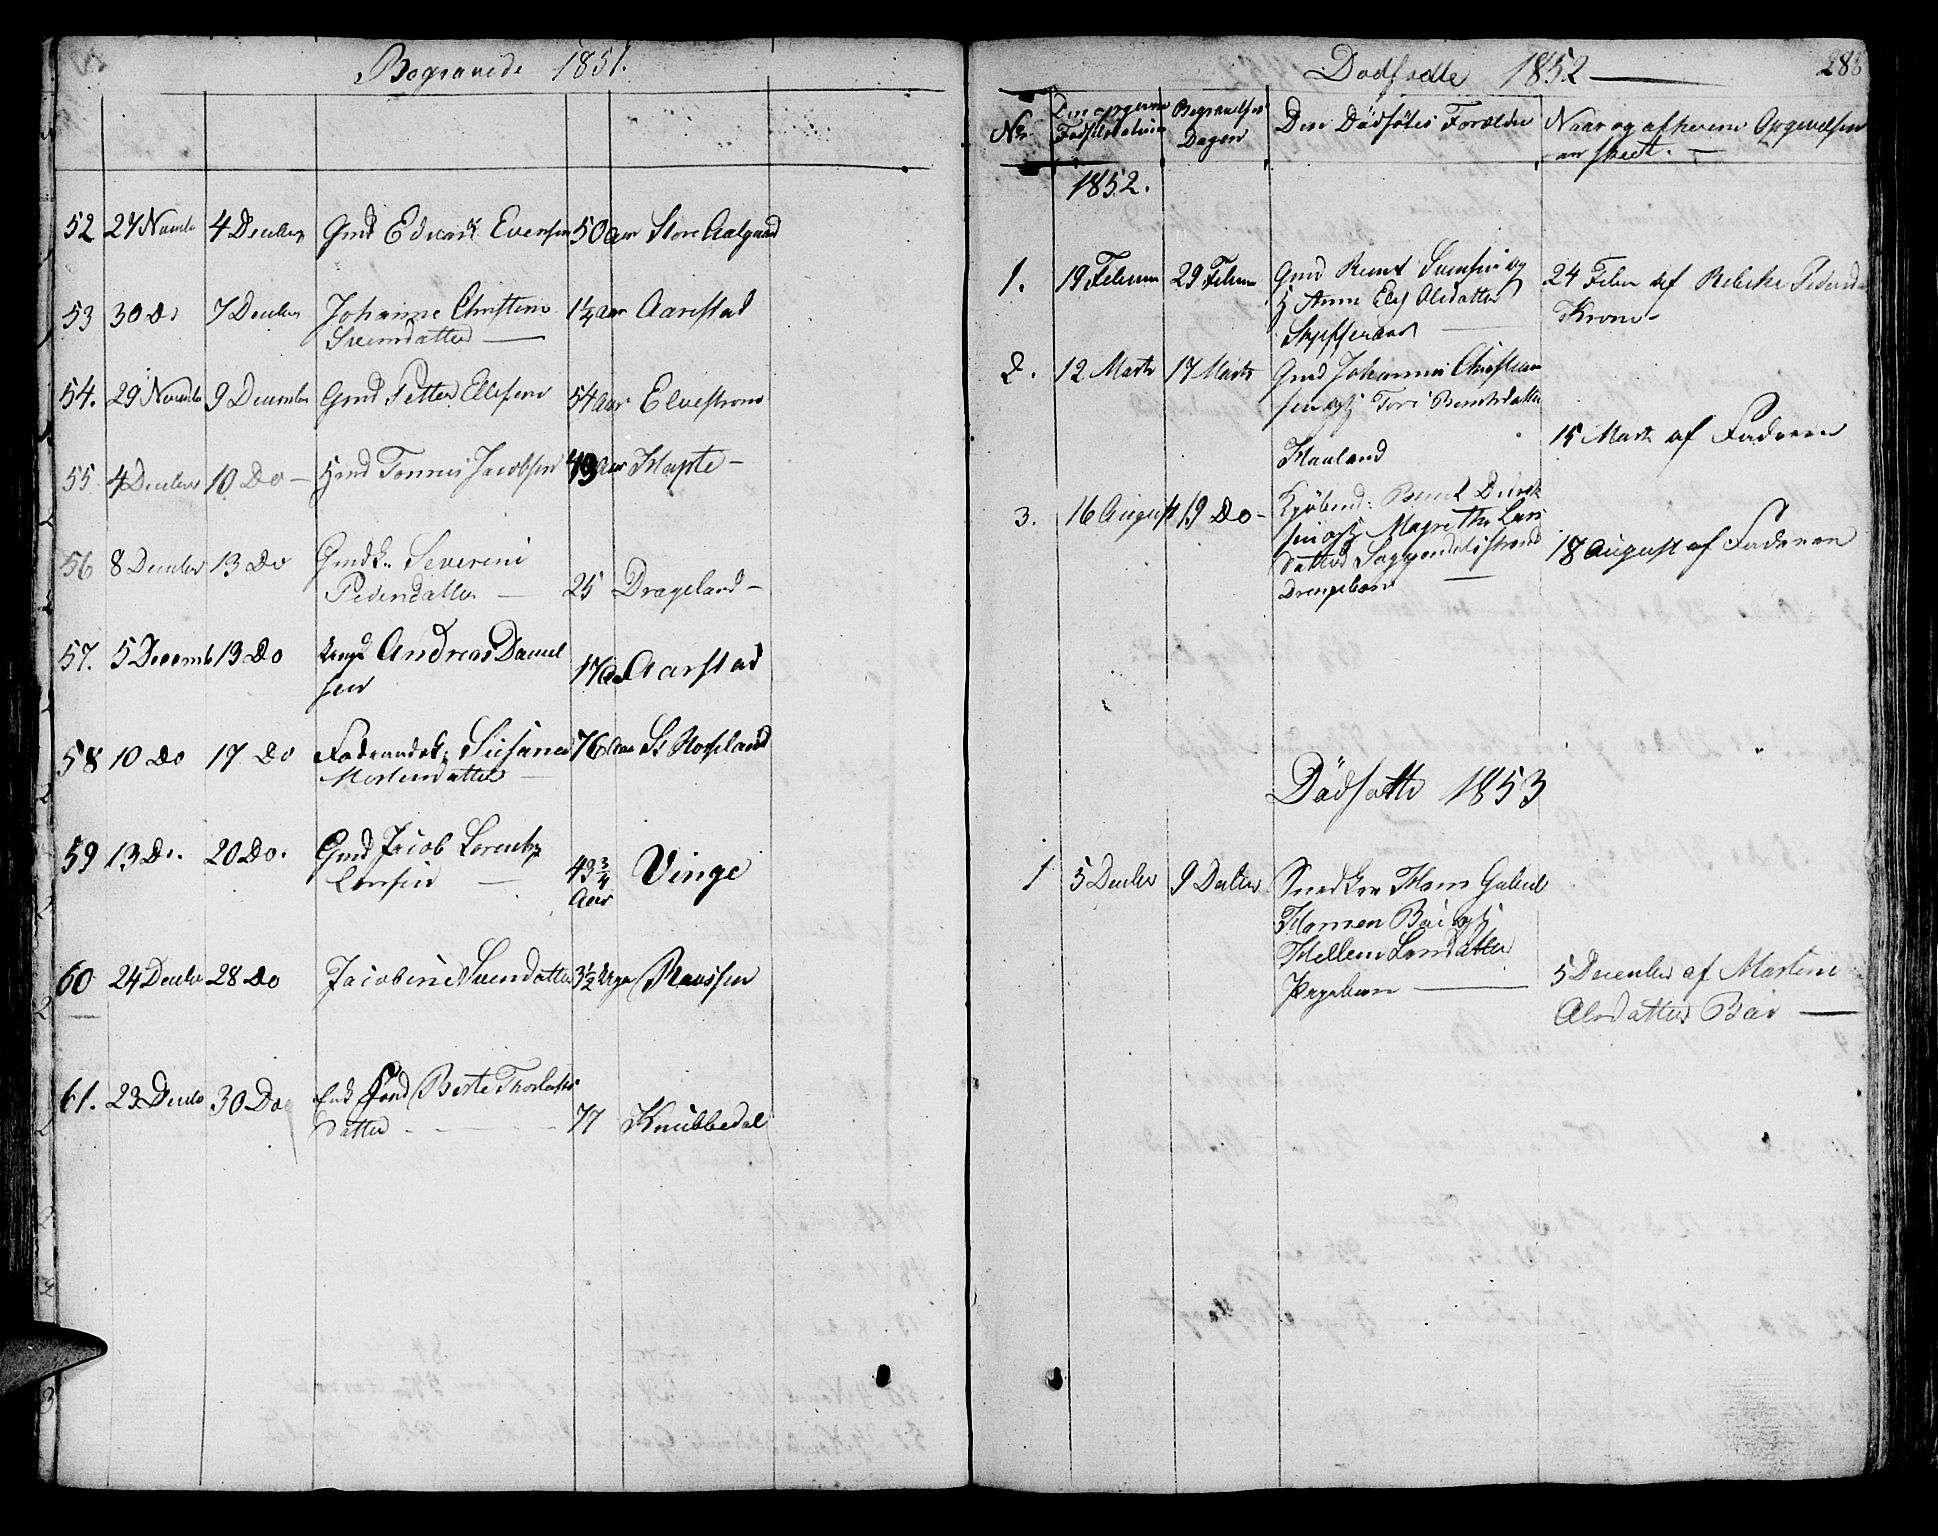 Begravede 1851.
52 27 Novmbr 4 December Gmd Edvard Evensen 50 Aar Store Aalgaard
53 30 Do 7 Decbr Johanne Christine 1¼ Aar Aarestad
Svensdatter —
54. 29 Novmbr 9 December Gmd Petter Ellefsen 54 Aar Elvestrøm
55. 4 December 10 Do — Hmd Tønnes Jacobsen 49 Aar
56 8 December 13 Do Gmdk. Severine
Pedersdatter — 25 Drageland —
57. 5 Decemb 13 Do Ungk Andreas Daniel
sen 17 Aar Aarstad
58 10 Do 17 Do Susanna 76 Aar
Mortensdatter —
59 13 Do. 20 Do. Gmd Jacob Lorentz
Larsen — 49¾ Aar Vinge
60 24 Decbr 28 Do Jacobine Svendatter 3½ Uge
61. 23 Decbr 30 Do Enk Berte Thorlaks
datter — 77 Knibbedal
Dødfødte 1852 — 288
No. Den opgivne Fødselsdatum Begravelses Dagen Den Dødfødtes Forældre Naar og af hvem Opgivelsen
er skeet. —
1852.
1. 19 Februar 29 Februar Gmd Bernt Svensen og
H Anne Else Olsdatter
24 Febr af Rebekke Pedersd
Krone —
2. 12 Marts 17 Marts Gmd Johannes Christian
sen og H Tori Berntsdatter
Haaland
15 Marts af Faderen
3. 16 August 19 Do — Bernt Dirik
sen og H Magrethe Lars
datter Soggendalsstrand
Drengebarn —
18 August af Faderen
Dødfødte 1853
1 5 Decbr 9 Decbr Snedker Hans Gabriel
Hansen Bøe og H
Mellene Larsdatter
Pigebarn —
5 December af Martine
Olsdatter Bøe —